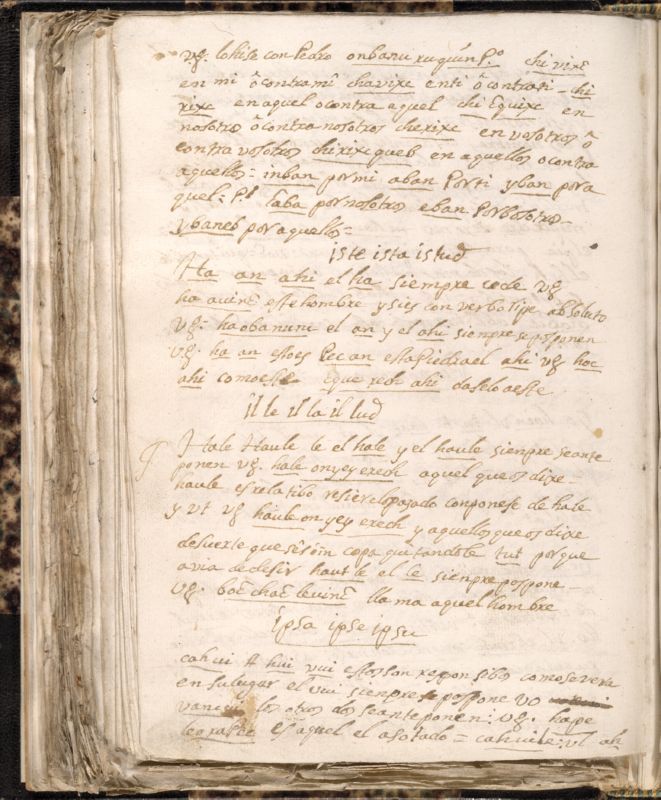 vg. lohise con Pedro onbanu xuquin P.º chi vixē
en mi ô contra mî chavixe enti ô contrati - chi
rixe en aquel o contra aquel chi Equixe en
nosotros ô contra nosotros cherixe en vosotros ô
contra vosotros chirixe queb en aquellos o contra
aquellos = inban por mi aban Porti yban por a
quel: P.l Caba por nosotros eban Porbosotros
ybaneb por aquellos =
iste ista istud
Ha an ahi el ha siempre cede vg
ha avinc este hombre y sies con verbo Sipe absoluto
vg. ha obanunc el an y el ahi siempre se posponen
vg. ha an estoes Pec an esta Piedra el ahi vg hoc
ahi como este Eque xeh ahi daselo a este
ille illa illud
Hale Haule le el hale y el haule siempre se ante
ponen vg. hale onyey exech aquel que os dixe -
haule es relatibo refiere lo pasado conponese de hale
y vt vg haule on yey exech y aquellos que os dixe
desuerte que sesom copa quitandole tut porque
avia de desir haut le el le siempre pospone -
vg. boc chac levinc llama aquel hombre
ipsa ipse ipsu
cahui A hui vui estos son responsibos como se vera
en su lugar el vui siempre se pospone vo
vanqui los otros dos se anteponen: vg. ha pe
leo xasec Es aquel el asotado = cahuile: vl ah